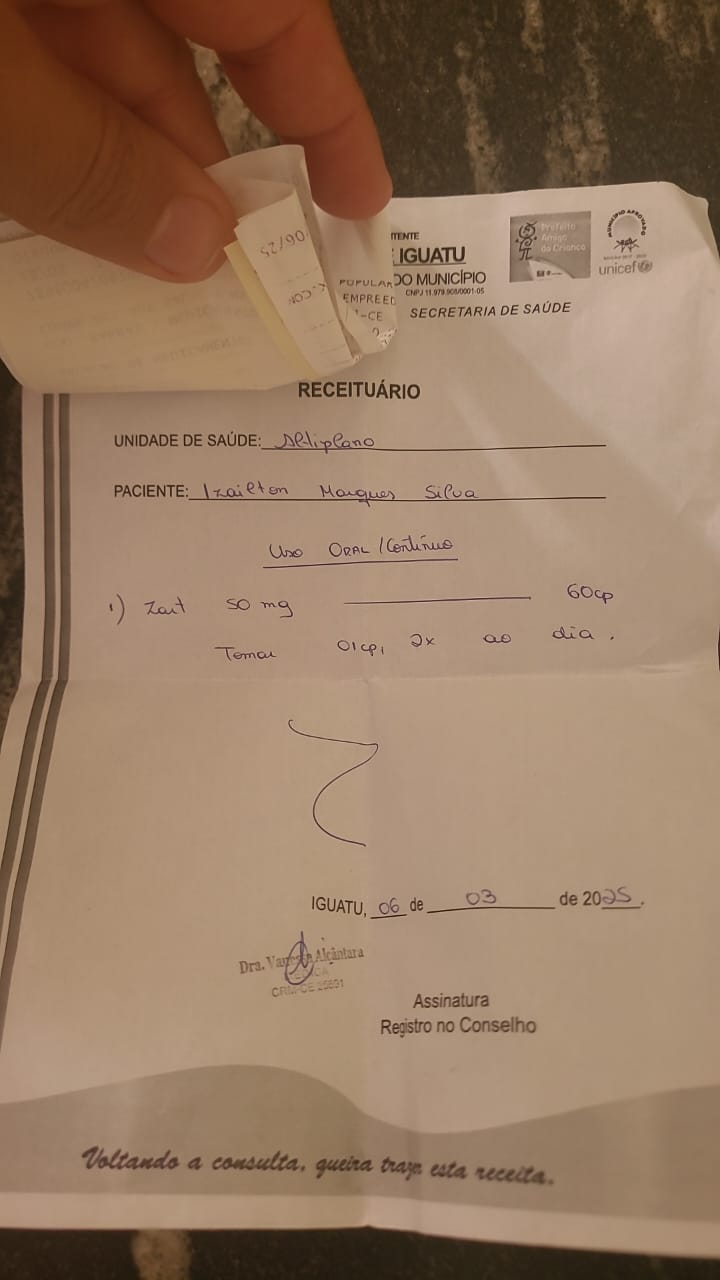 06/25
POPULAR
EMPREED
-CE
IGUATU
DO MUNICÍPIO
CNPJ 11.979.908/0001-05
SECRETARIA DE SAÚDE
Prefeito
Amigo
da Criança
MUNICÍPIO APROVADO
unicef
RECEITUÁRIO
UNIDADE DE SAÚDE: Altiplano
PACIENTE: Izailton Marques Silva
Uso Oral / Contínuo
1) Zart 50 mg 60cp
Tomar 01cp, 2x ao dia.
IGUATU, 06 de 03 de 2025.
Dra. Vanessa Alcântara
CRM-CE 25691
Assinatura
Registro no Conselho
Voltando a consulta, queira trazer esta receita.